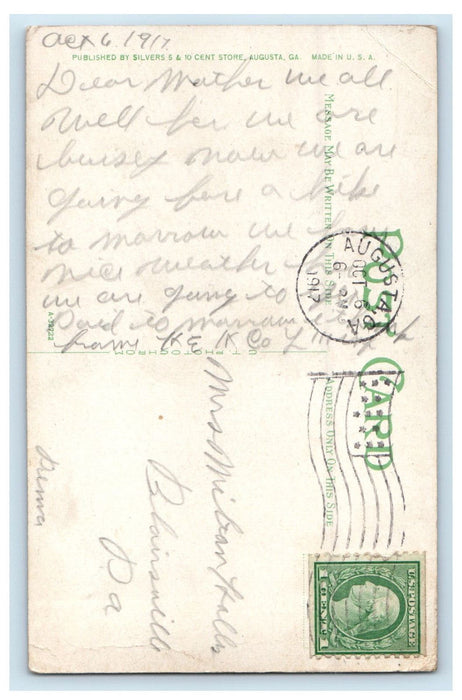 Oct 6. 1917
PUBLISHED BY SILVERS 5 & 10 CENT STORE, AUGUSTA, GA. MADE IN U. S. A.
Dear Mother we all
well her we are
buisey now we are
going fore a hike
to morrow we have
nice weather
we are going to get
Paid to morrow
from K E K Co
MESSAGE MAY BE WRITTEN ON THIS SIDE
POST CARD
ADDRESS ONLY ON THIS SIDE
AUGUSTA, GA
OCT 6
6 - PM
1917
Mrs Milton
Blairsville
Pa
U.S. POSTAGE
1 CENT 1